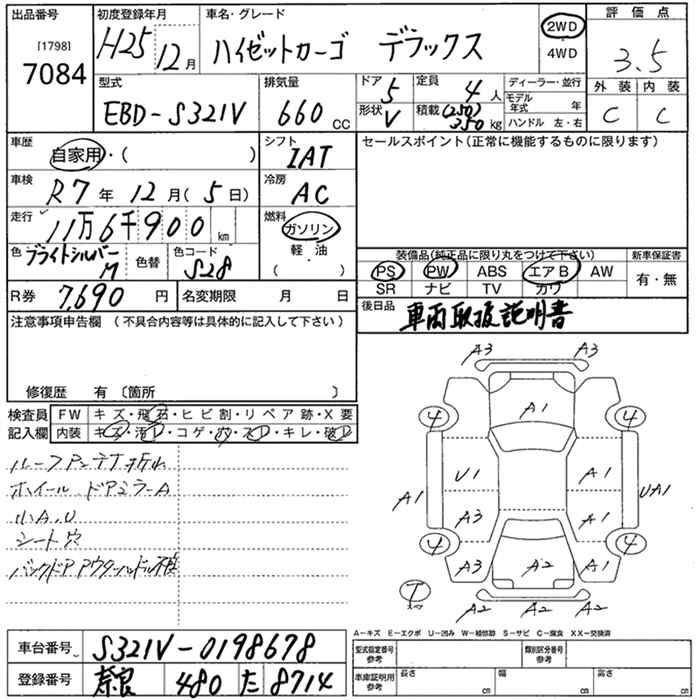 出品番号
[1798]
7084
初度登録年月
H25 12月
車名・グレード
ハイゼットカーゴ デラックス
2WD
4WD
評価点
3.5
外装 内装
C C
型式
EBD-S321V
排気量
660 CC
ドア 5
形状 V
定員 4 人
積載 (250) 350 kg
ディーラー・並行
モデル年式 年
ハンドル 左・右
車歴
自家用・( )
シフト
IAT
セールスポイント(正常に機能するものに限ります)
車検
R7年 12月(5日)
冷房
AC
走行
11万6千900 km
燃料
ガソリン
軽・油
・
( )
色 ブライトシルバーM
色替
色コード S28
装備品(純正品に限り丸をつけて下さい)
PS PW ABS エアB AW
SR ナビ TV カワ
新車保証書
有・無
R券 7,690 円
名変期限 月 日
後日品 車両取扱説明書
注意事項申告欄(不具合内容等は具体的に記入して下さい)
修復歴 有〔箇所 〕
検査員記入欄
FW キズ・飛石・ヒビ割・リペア跡・X要
内装 キズ・汚レ・コゲ・穴・スレ・キレ・破レ
ルーフアンテナ折れ
ホイール ドアミラーA
小A.U
シート穴
バックドアアウターハンドル不良
A3 A3
4 A1 4
A1 U1 A1 UA1
A3 A1
4 4
A3 A2 A1
T
A2 A2
A−キズ E−エクボ U−凹み W−補修跡 S−サビ C−腐食 XX−交換済
車台番号 S321V-0198678
登録番号 奈良 480 た 8714
型式指定番号 参考
類別区分番号 参考
車庫証明用 参考
長さ cm
幅 cm
高さ cm